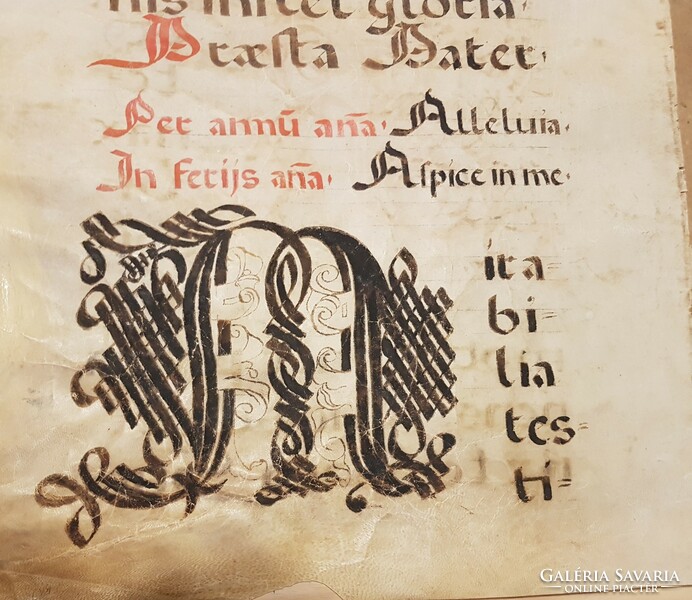 nis micet gloria.
Præsta Pater.
Per annū aña. Alleluia.
In ferijs aña. Aspice in me.
M
ira
bi=
lia
tes=
ti=
GALÉRIA SAVARIA
ONLINE PIACTÉR